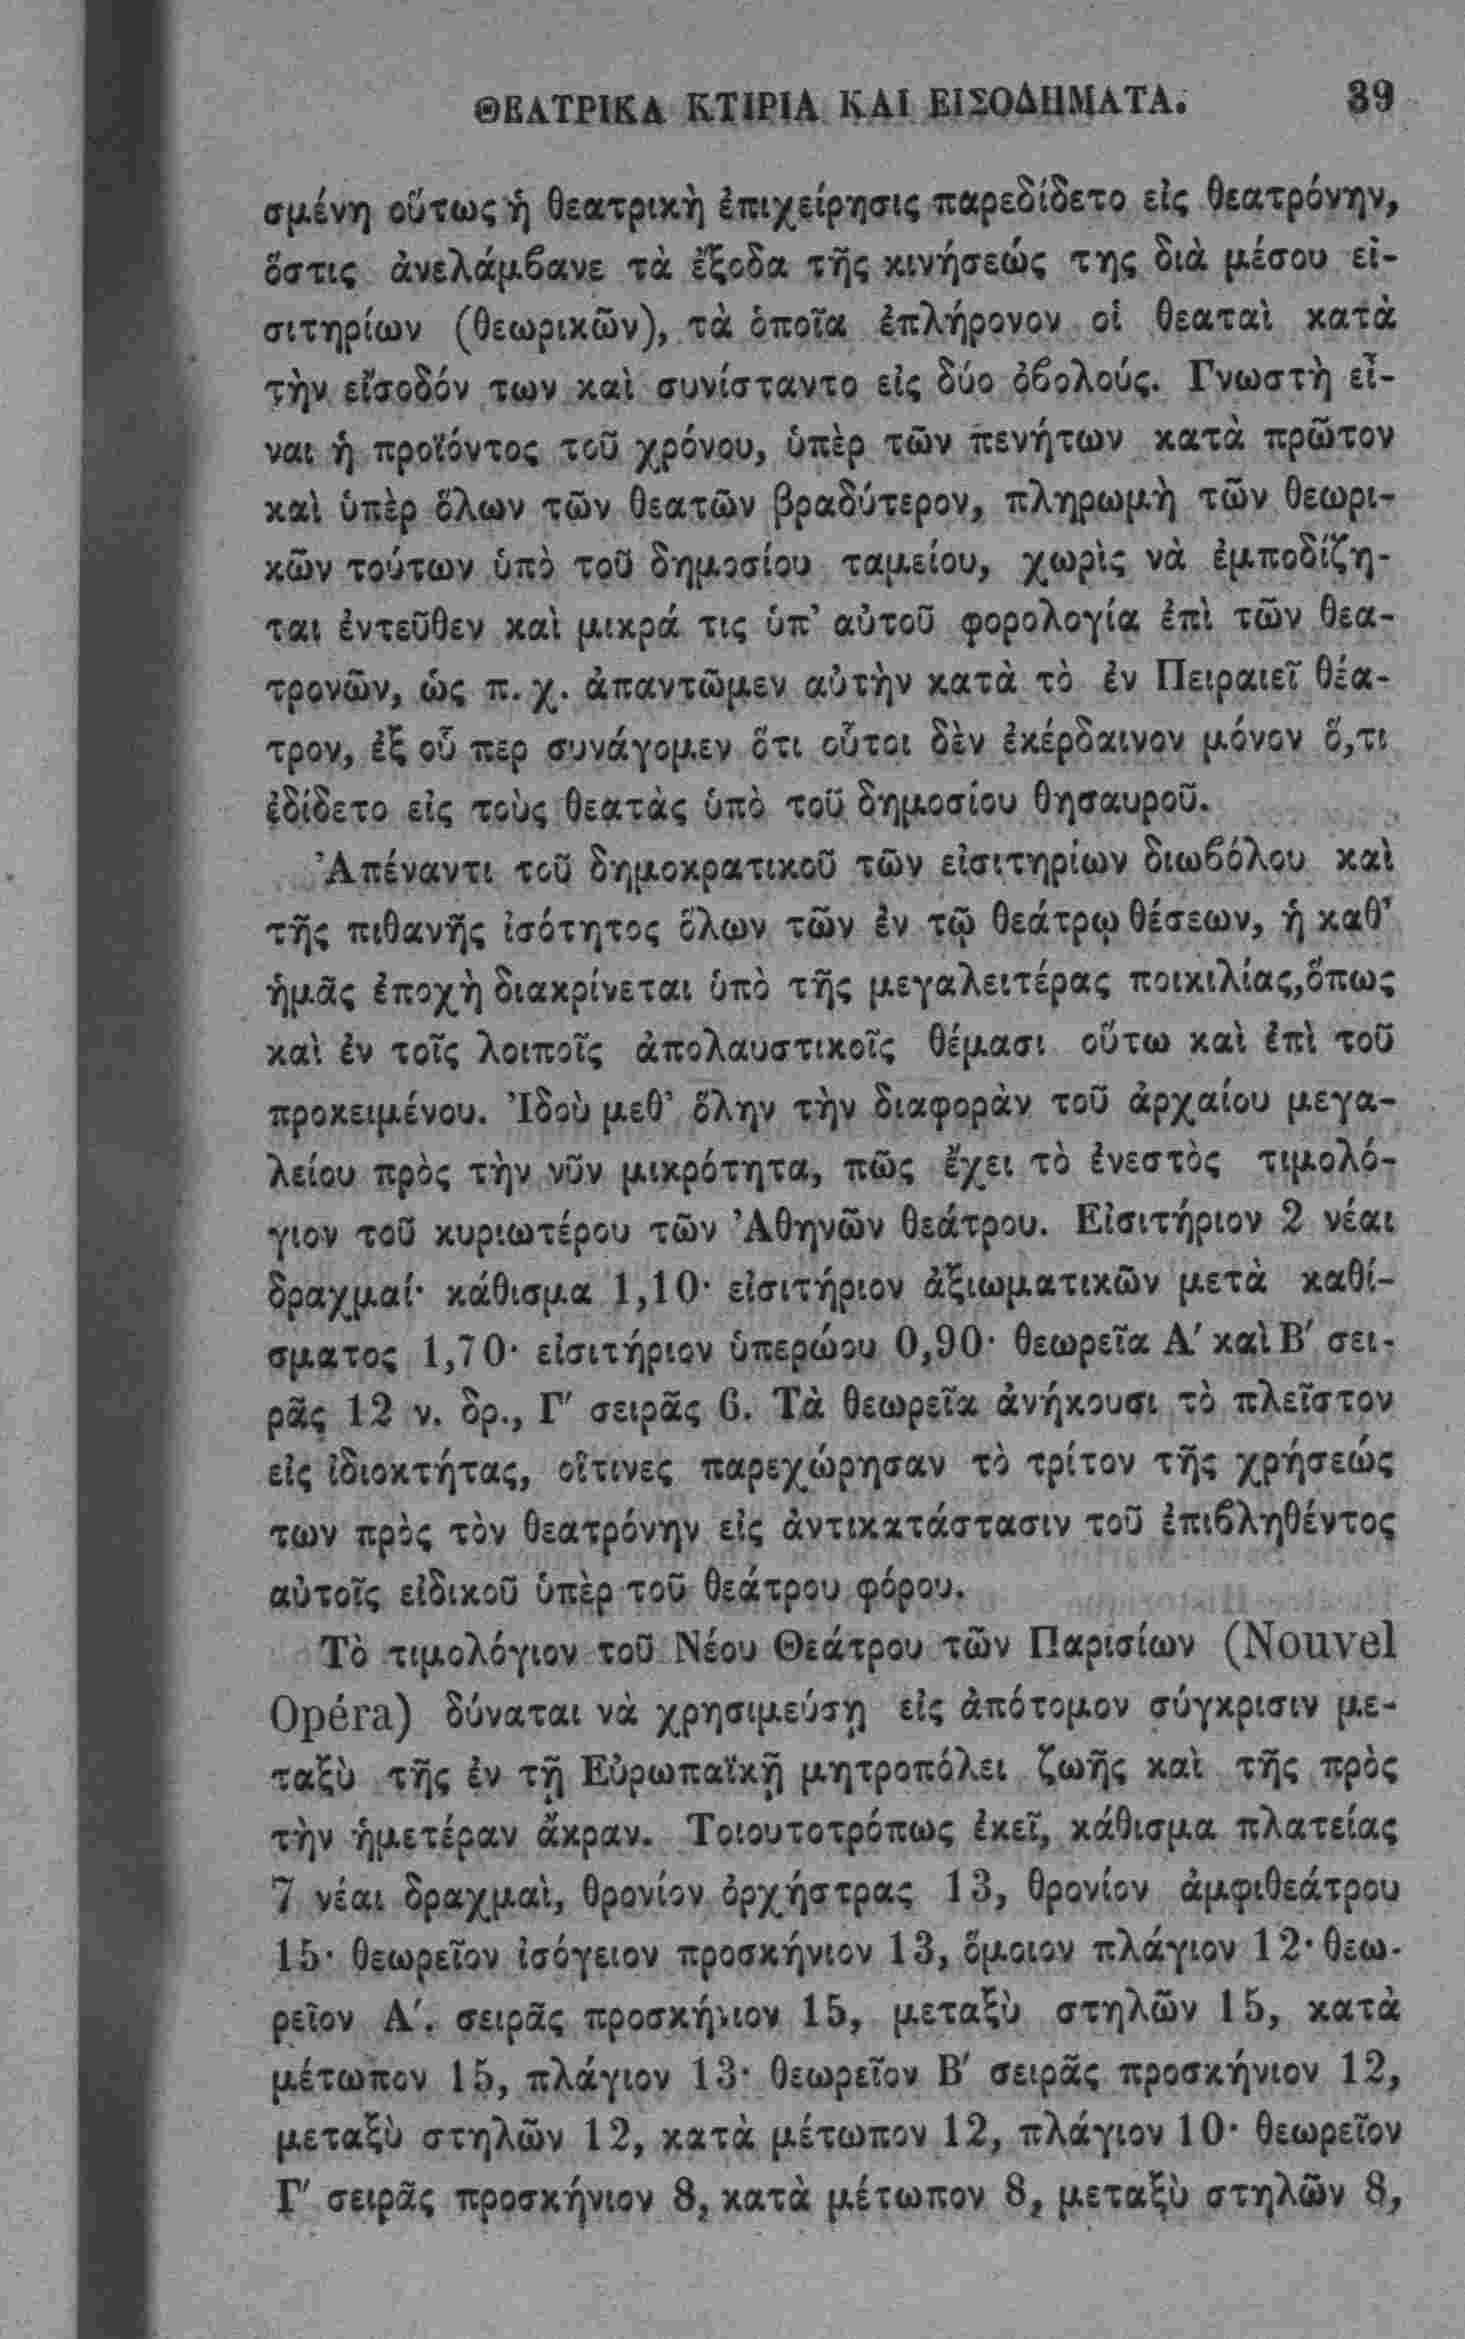 ΘΕΑΤΡΙΚΑ ΚΤΙΡΙΑ ΚΑΙ ΕΙΣΟΔΗΜΑΤΑ. 39
σμένη οὕτως ἡ θεατρικὴ ἐπιχείρησις παρεδίδετο εἰς θεατρόνην,
ὅστις ἀνελάμϐανε τὰ ἔξοδα τῆς κινήσεώς της διὰ μέσου εἰ-
σιτηρίων (θεωρικῶν), τὰ ὁποῖα ἐπλήρονον οἱ θεαταὶ κατὰ
τὴν εἴσοδόν των καὶ συνίσταντο εἰς δύο ὀϐολούς. Γνωστὴ εἶ-
ναι ἡ προϊόντος τοῦ χρόνου, ὑπὲρ τῶν πενήτων κατὰ πρῶτον
καὶ ὑπὲρ ὅλων τῶν θεατῶν βραδύτερον, πληρωμὴ τῶν θεωρι-
κῶν τούτων ὑπὸ τοῦ δημοσίου ταμείου, χωρὶς νὰ ἐμποδίζη-
ται ἐντεῦθεν καὶ μικρά τις ὑπ' αὐτοῦ φορολογία ἐπὶ τῶν θεα-
τρονῶν, ὡς π. χ. ἀπαντῶμεν αὐτὴν κατὰ τὸ ἐν Πειραιεῖ θέα-
τρον, ἐξ οὗ περ συνάγομεν ὅτι οὗτοι δὲν ἐκέρδαινον μόνον ὅ,τι
ἐδίδετο εἰς τοὺς θεατὰς ὑπὸ τοῦ δημοσίου θησαυροῦ.
Ἀπέναντι τοῦ δημοκρατικοῦ τῶν εἰσιτηρίων διωϐόλου καὶ
τῆς πιθανῆς ἰσότητος ὅλων τῶν ἐν τῷ θεάτρῳ θέσεων, ἡ καθ'
ἡμᾶς ἐποχὴ διακρίνεται ὑπὸ τῆς μεγαλειτέρας ποικιλίας, ὅπως
καὶ ἐν τοῖς λοιποῖς ἀπολαυστικοῖς θέμασι οὕτω καὶ ἐπὶ τοῦ
προκειμένου. Ἰδοὺ μεθ' ὅλην τὴν διαφορὰν τοῦ ἀρχαίου μεγα-
λείου πρὸς τὴν νῦν μικρότητα, πῶς ἔχει τὸ ἐνεστὸς τιμολό-
γιον τοῦ κυριωτέρου τῶν Ἀθηνῶν θεάτρου. Εἰσιτήριον 2 νέαι
δραχμαί· κάθισμα 1,10· εἰσιτήριον ἀξιωματικῶν μετὰ καθί-
σματος 1,70· εἰσιτήριον ὑπερώου 0,90· θεωρεῖα Α' καὶ Β' σει-
ρᾶς 12 ν. δρ., Γ' σειρᾶς 6. Τὰ θεωρεῖα ἀνήκουσι τὸ πλεῖστον
εἰς ἰδιοκτήτας, οἵτινες παρεχώρησαν τὸ τρίτον τῆς χρήσεώς
των πρὸς τὸν θεατρόνην εἰς ἀντικατάστασιν τοῦ ἐπιϐληθέντος
αὐτοῖς εἰδικοῦ ὑπὲρ τοῦ θεάτρου φόρου.
Τὸ τιμολόγιον τοῦ Νέου Θεάτρου τῶν Παρισίων (Nouvel
Opéra) δύναται νὰ χρησιμεύσῃ εἰς ἀπότομον σύγκρισιν με-
ταξὺ τῆς ἐν τῇ Εὐρωπαϊκῇ μητροπόλει ζωῆς καὶ τῆς πρὸς
τὴν ἡμετέραν ἄκραν. Τοιουτοτρόπως ἐκεῖ, κάθισμα πλατείας
7 νέαι δραχμαὶ, θρονίον ὀρχήστρας 13, θρονίον ἀμφιθεάτρου
15· θεωρεῖον ἰσόγειον προσκήνιον 13, ὅμοιον πλάγιον 12· θεω-
ρεῖον Α'. σειρᾶς προσκήνιον 15, μεταξὺ στηλῶν 15, κατὰ
μέτωπον 15, πλάγιον 13· θεωρεῖον Β' σειρᾶς προσκήνιον 12,
μεταξὺ στηλῶν 12, κατὰ μέτωπον 12, πλάγιον 10· θεωρεῖον
Γ' σειρᾶς προσκήνιον 8, κατὰ μέτωπον 8, μεταξὺ στηλῶν 8,